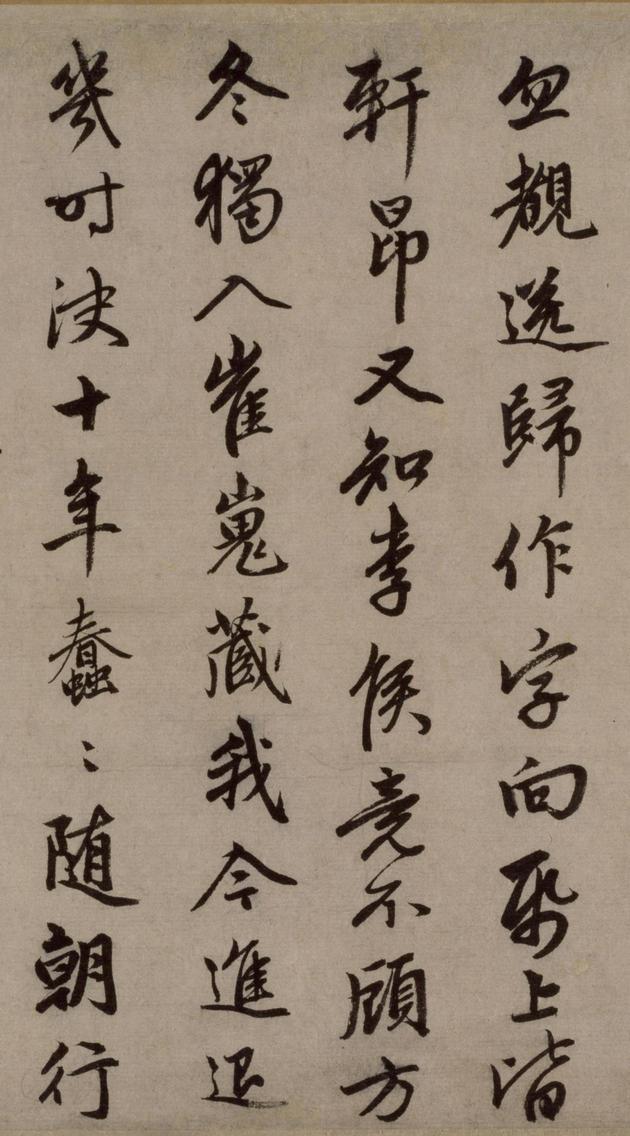 忽覩送歸作字向帋上皆
軒昂又知李侯竟不顧方
冬獨入崔嵬藏我今進退
幾時決十年蠢〻随朝行